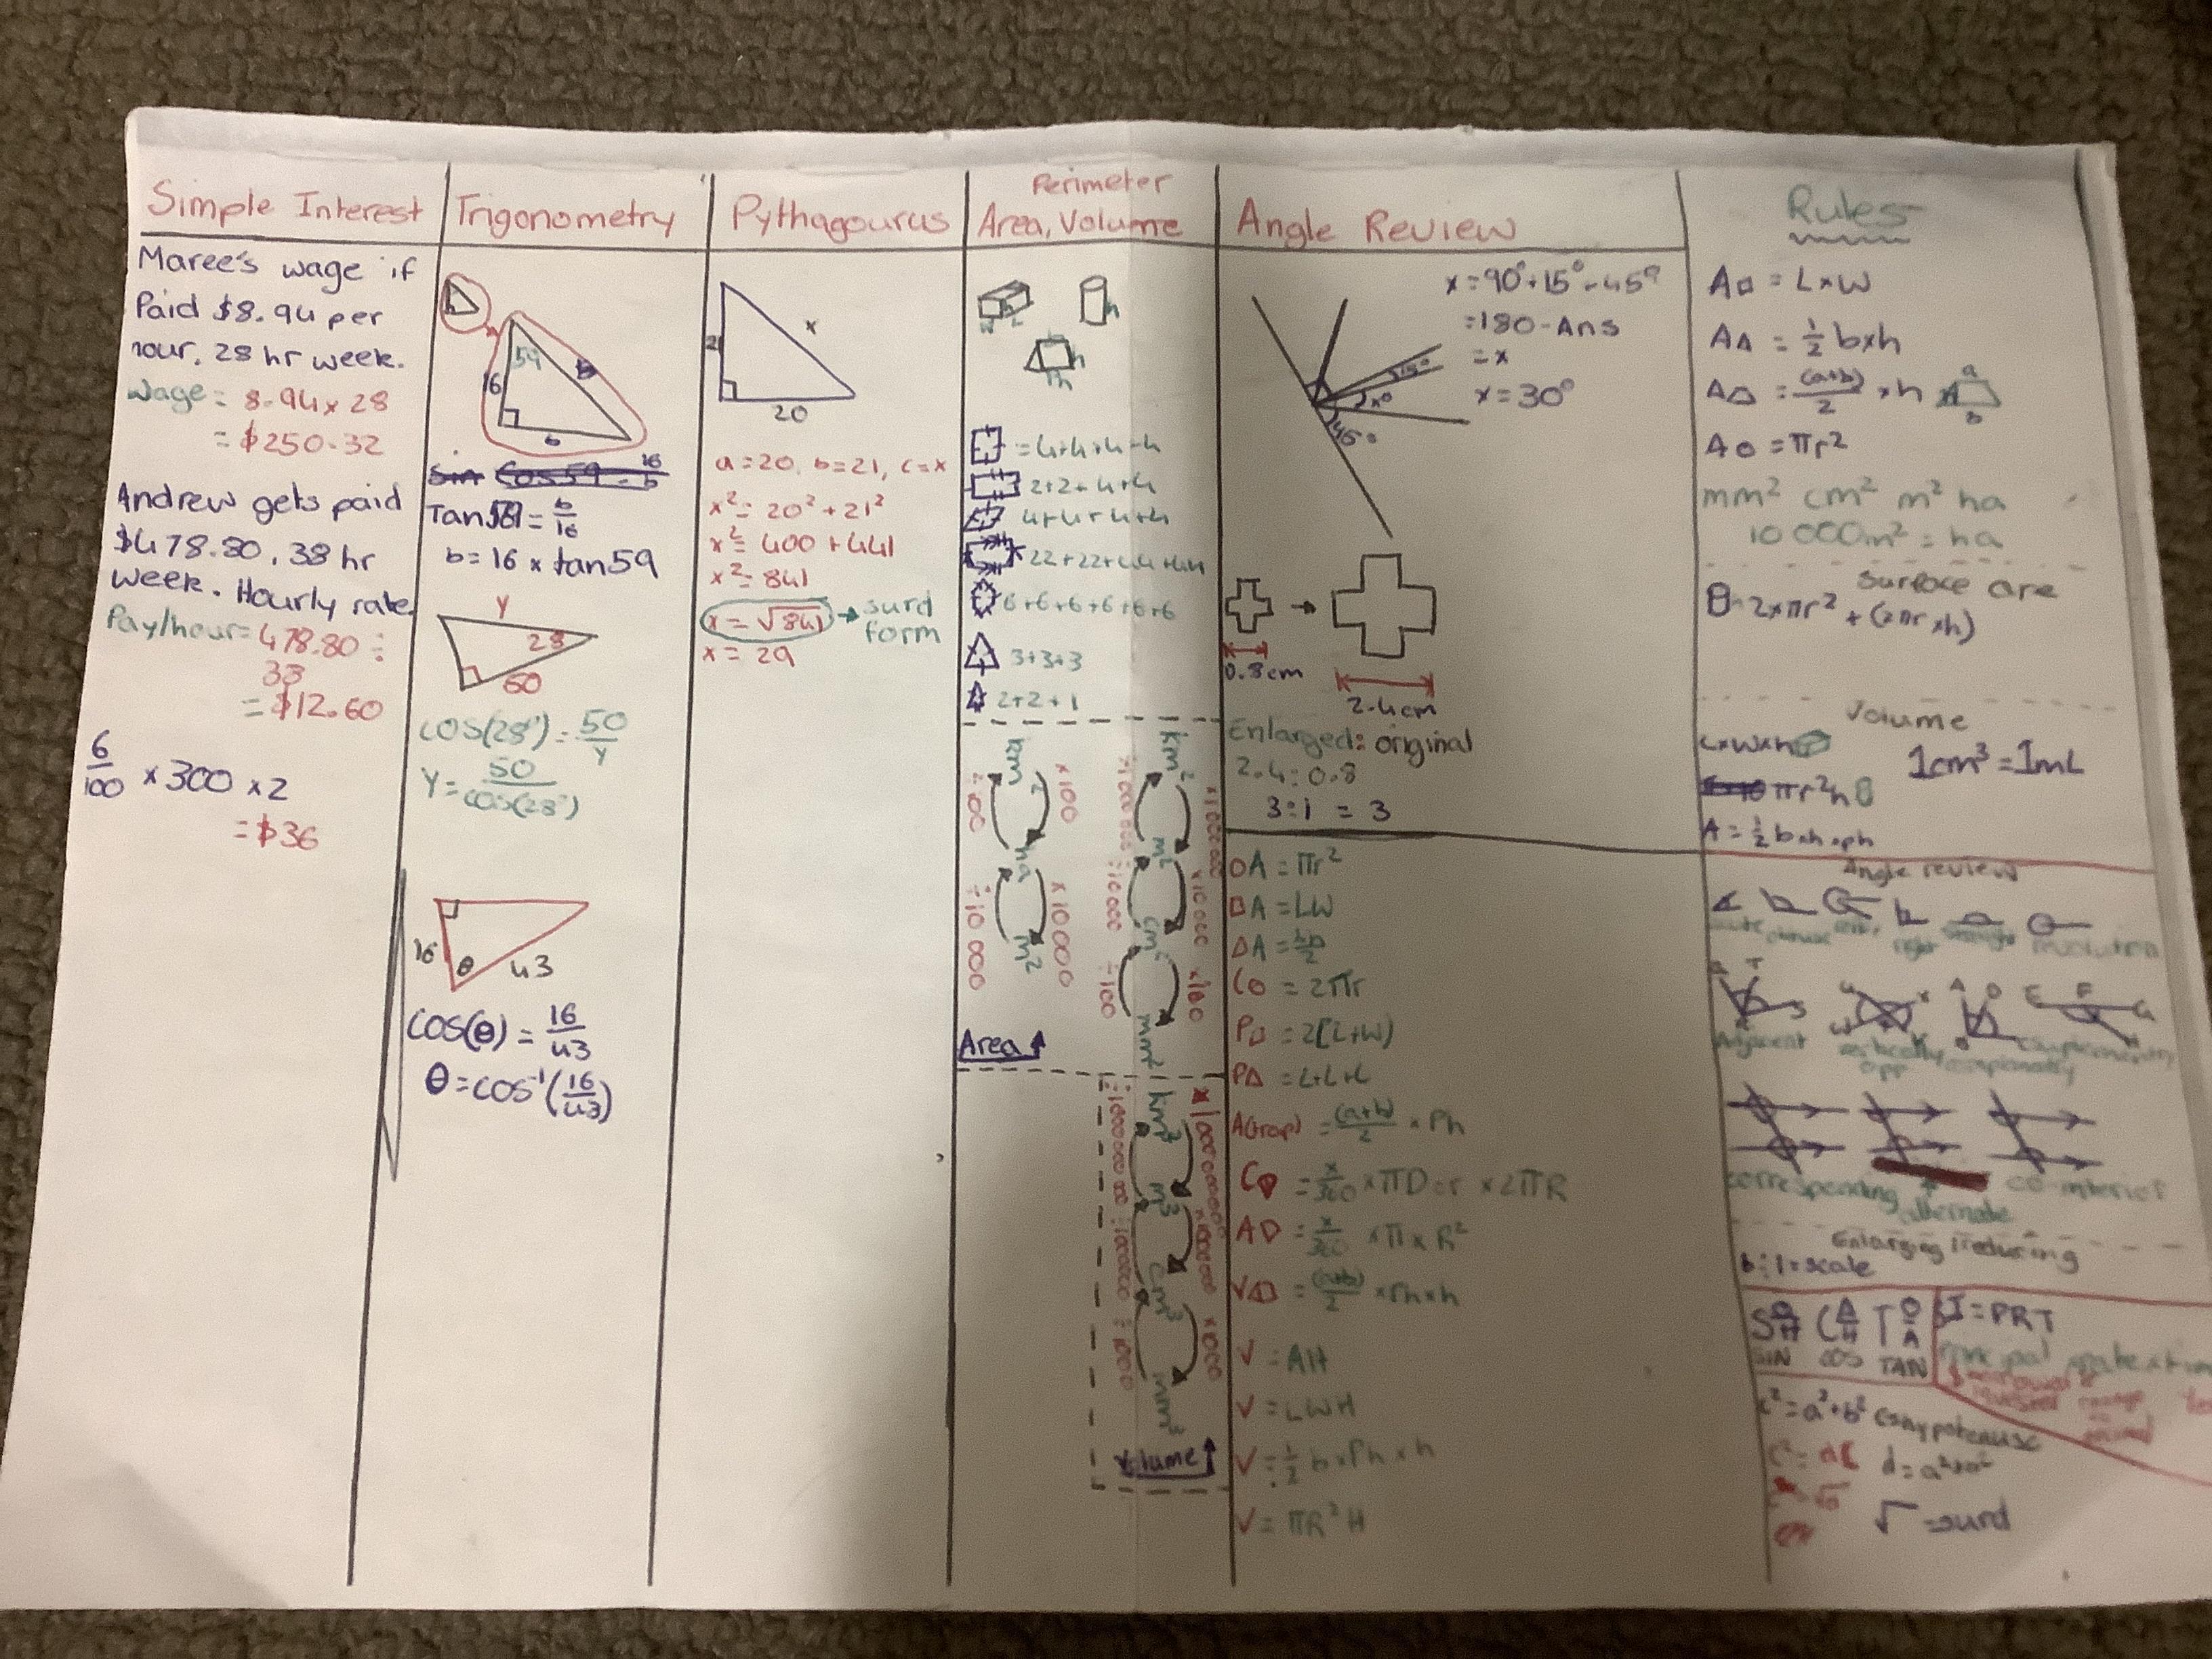 Simple Interest
Maree's wage if
Paid $8.94 per
hour. 28 hr week.
Wage = 8.94 x 28
= $250.32
Andrew gets paid
$478.80, 38 hr
week. Hourly rate
Pay/hour = 478.80 ÷
38
= $12.60
6/100 x 300 x 2
= $36
Trigonometry
59
16
b
Tan 59 = b/16
b = 16 x tan59
Y
28
50
cos(28°) = 50/Y
Y = 50/cos(28°)
16
θ
43
cos(θ) = 16/43
θ = cos⁻¹(16/43)
Pythagourus
21
x
20
a=20, b=21, c=x
x² = 20² + 21²
x² = 400 + 441
x² = 841
x = √841 → surd
form
x = 29
Perimeter
Area, Volume
= 4+4+4+4
2+2+4+4
4+4+4+4
22+22+44+44
6+6+6+6+6+6
3+3+3
2+2+1
km²
÷100
x100
ha
÷10 000
x10 000
m²
km²
÷1 000 000
x1 000 000
m²
÷10 000
x10 000
cm²
÷100
x100
mm²
Area ↑
km³
m³
cm³
÷1000
x1000
mm³
Volume ↑
Angle Review
x = 90° + 15° + 45°
= 180 - Ans
= x
x = 30°
15°
x°
45°
0.8cm
2.4cm
Enlarged: original
2.4 : 0.8
3:1 = 3
A = πr²
A = LW
A = hb/2
C = 2πr
P = 2(L+W)
P = L+L+L
A(trap) = (a+b)/2 x Ph
C = x/360 x πD or x2πR
A = x/360 x π x R²
V = (a+b)/2 x Ph x h
V = AH
V = LWH
V = ½ b x Ph x h
V = πR²H
Rules
A = L x W
A = ½ b x h
A = (a+b)/2 x h
a
b
A = πr²
mm² cm² m² ha
10 000m² = ha
Surface are
2 x πr² + (2πr x h)
Volume
L x W x h
1cm³ = 1mL
πr²h
A = ½ b x h x ph
Angle review
acute obtuse right straight revolution
Adjacent
vertically
opp
complementry
corresponding
alternate
co-interior
Enlarging/reducing
b:1 = scale
S O/H C A/H T O/A
SIN COS TAN
I = PRT
principal
c² = a² + b²
√ = surd